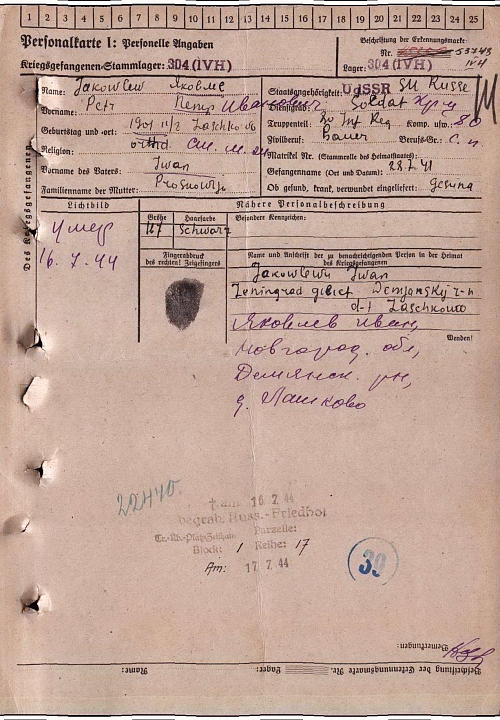 1 2 3 4 5 6 7 8 9 10 11 12 13 14 15 16 17 18 19 20 21 22 23 24 25
Personalkarte I: Personelle Angaben
Kriegsgefangenen-Stammlager: 304 (IVH)
Beschriftung der Erkennungsmarke
Nr. 53748
IVH
Lager: 304 (IVH)
Des Kriegsgefangenen
Name: Jakowlew Яковлев
Vorname: Petr Петр Иванович
Geburtstag und -ort: Laschkowo
Religion: orthd
Vorname des Vaters: Iwan
Familienname der Mutter:
Staatsangehörigkeit: UdSSR SU Russe
Dienstgrad: Soldat
Truppenteil: Inf Reg Komp. usw.:
Zivilberuf: Bauer Berufs-Gr.:
Matrikel Nr. (Stammrolle des Heimatstaates):
Gefangenname (Ort und Datum): 28.7.41
Ob gesund, krank, verwundet eingeliefert: gesund
Lichtbild
Nähere Personalbeschreibung
Größe Haarfarbe Besondere Kennzeichen:
Schwarz
умер
16.7.44
Fingerabdruck
des rechten! Zeigefingers
Name und Anschrift der zu benachrichtigenden Person in der Heimat
des Kriegsgefangenen
Jakowlewu Iwan
Leningrad gibiet Demjonsky r-n
d-t Laschkowo
Яковлев Иван,
Wenden!
Новгород. обл,
Демянск. рн,
д. Лашково
22440.
† am 16 7. 44
begrab. Russ.-Friedhof
Parzelle:
Block: 1 Reihe: 17
Am: 17 7. 44
39
Bemerkungen:
Beschriftung der Erkennungsmarke Nr. Lager: Name: